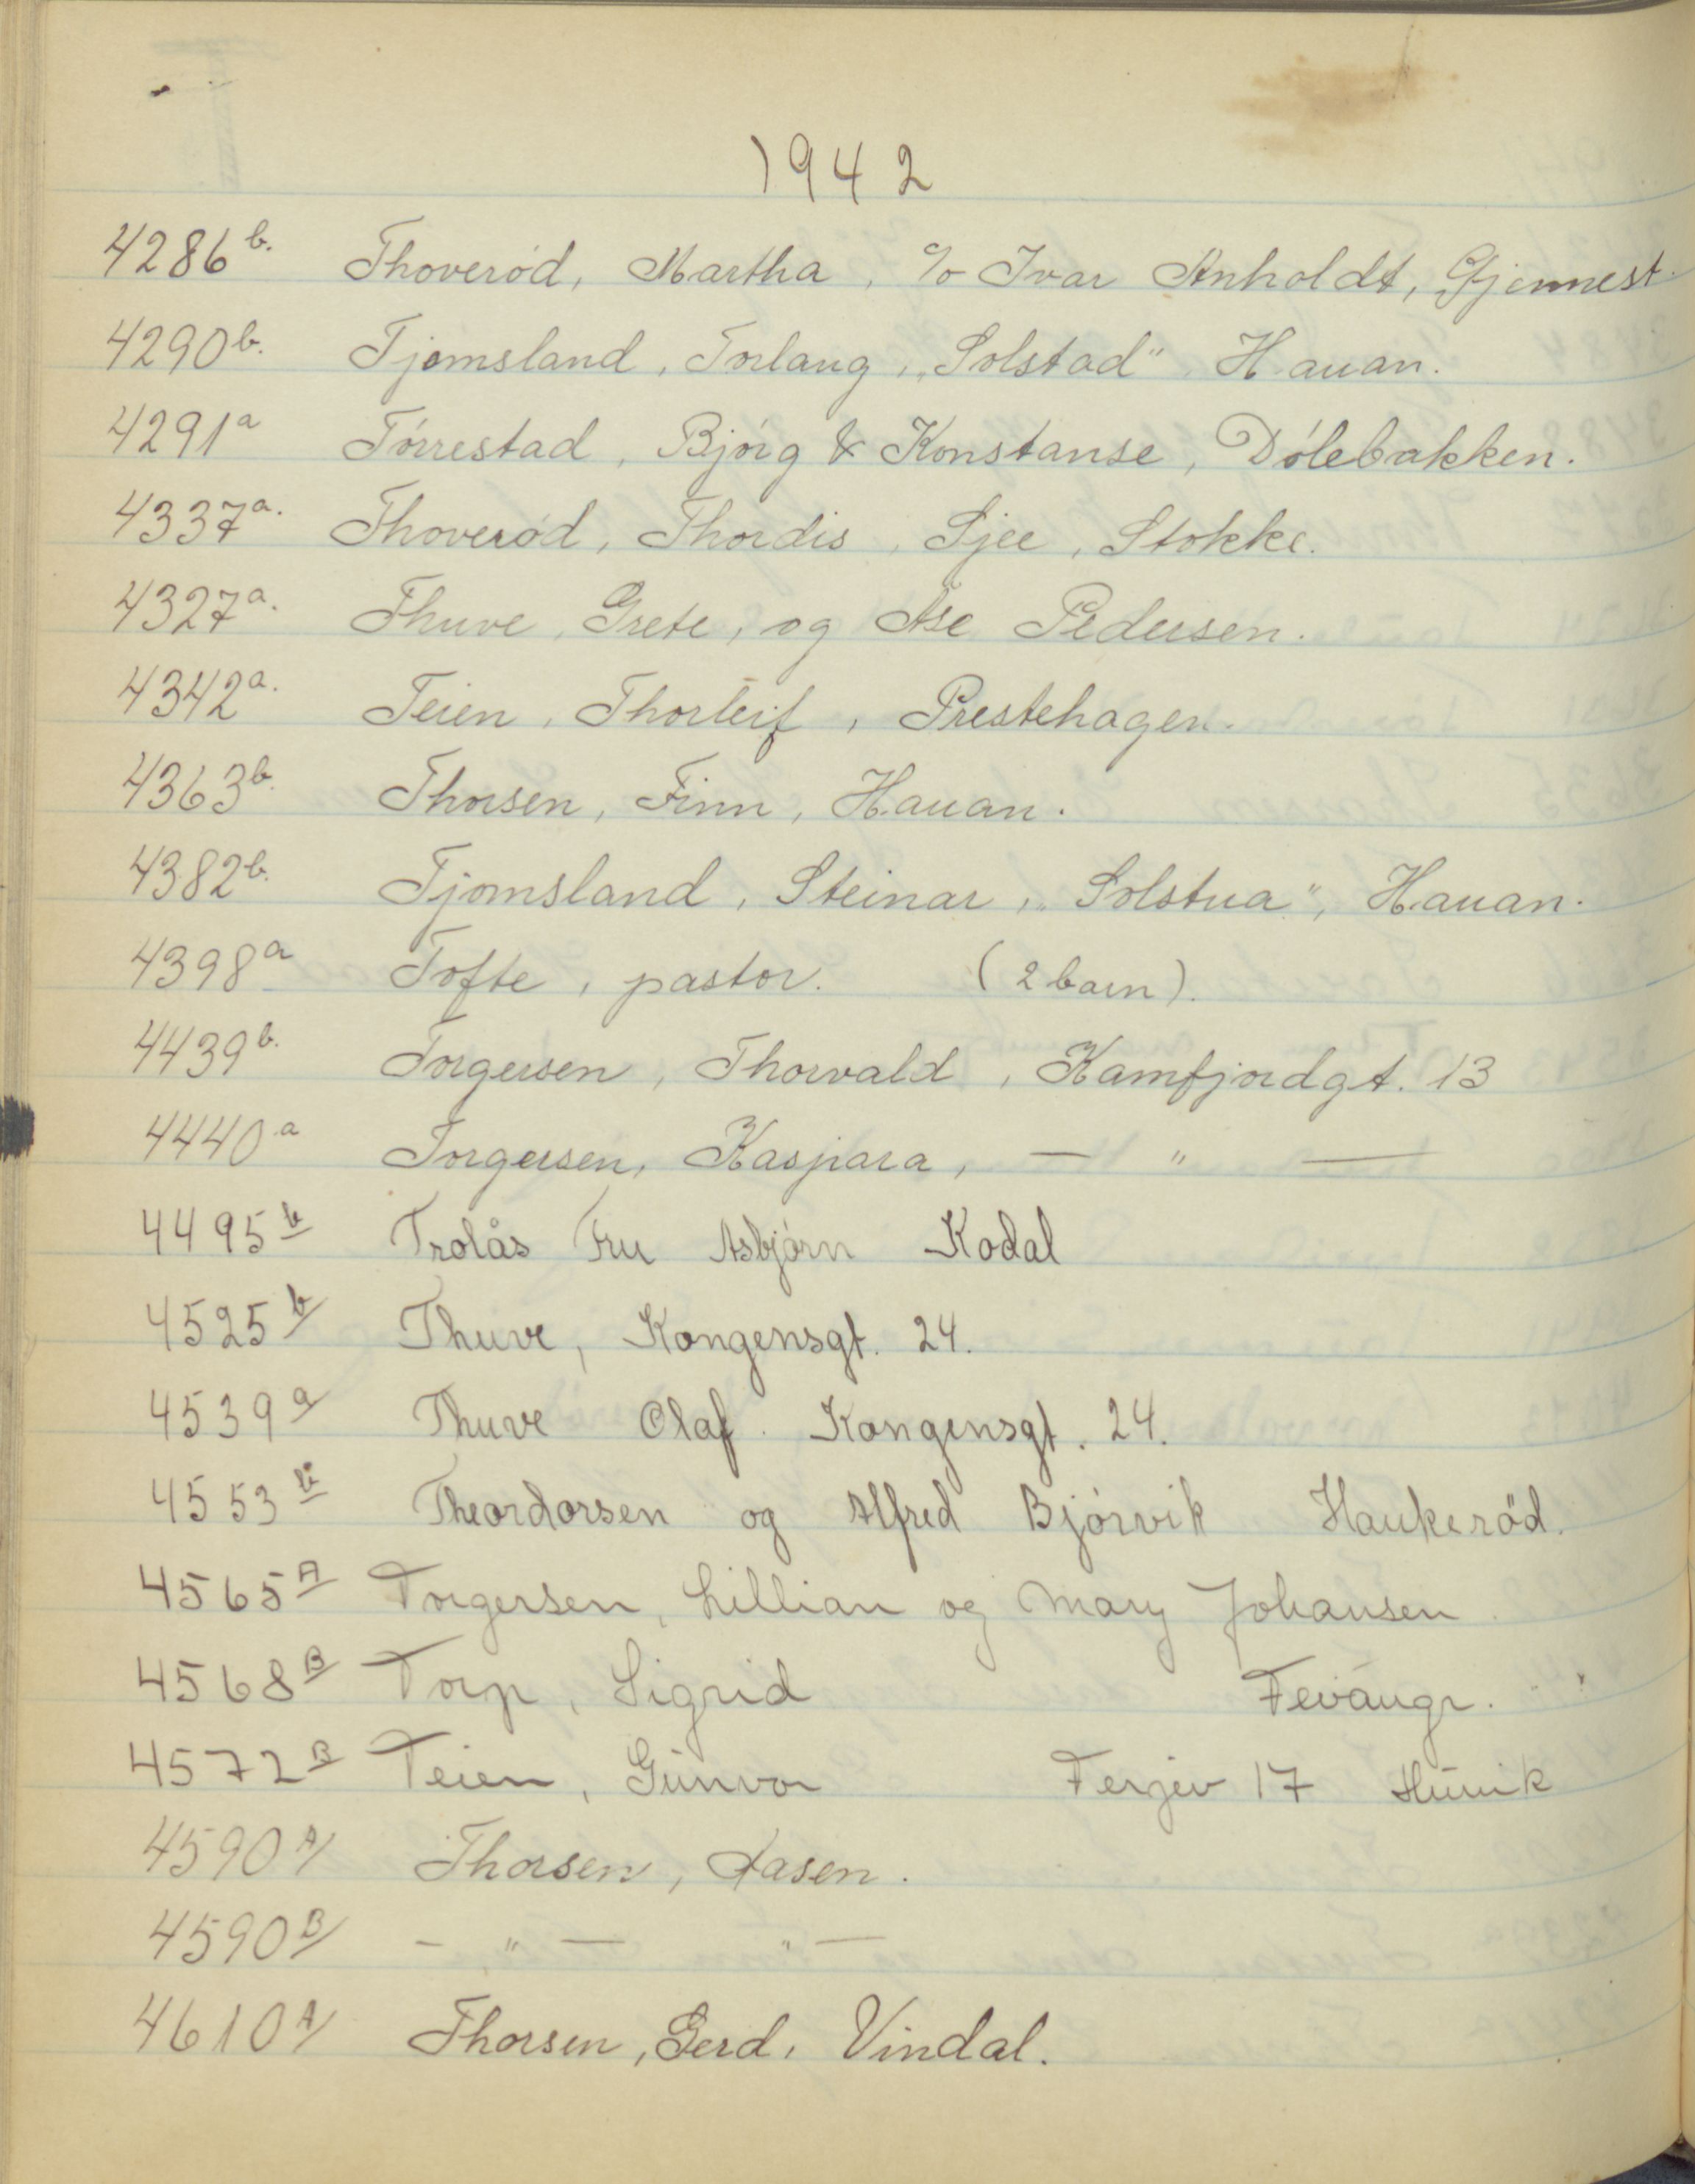 1942
4286 b. Thoverød, Martha, c/o Ivar Anholdt, Gjennest.
4290 b. Tjomsland, Torlaug, „Solstad" Hauan.
4291 a Tørrestad, Bjørg & Konstanse, Dølebakken.
4337 a. Thoverød, Thordis, Sjee, Stokke.
4327 a. Thuve, Grete, og Åse Pedersen.
4342 a. Teien, Thorleif, Prestehagen.
4363 b. Thorsen, Finn, Hauan.
4382 b. Tjomsland, Steinar, „Solstua", Hauan.
4398 a Tofte, pastor. (2 barn).
4439 b. Torgersen, Thorvald, Kamfjordgt. 13
4440 a Torgersen, Kaspara, — " —
4495 b Trolås Fru Asbjørn Kodal
4525 b Thuve, Kongensgt. 24.
4539 a Thuve Olaf. Kongensgt. 24.
4553 b Theordorsen og Alfred Bjørvik Haukerød.
4565 A Torgersen, Lillian og Mary Johansen
4568 B Torp, Sigrid Fevang
4572 B Teien, Gunvor 17
4590 A/ Thorsen, Aasen.
4590 B/ — " — " —
4610 A/ Thorsen, Gerd, Vindal.